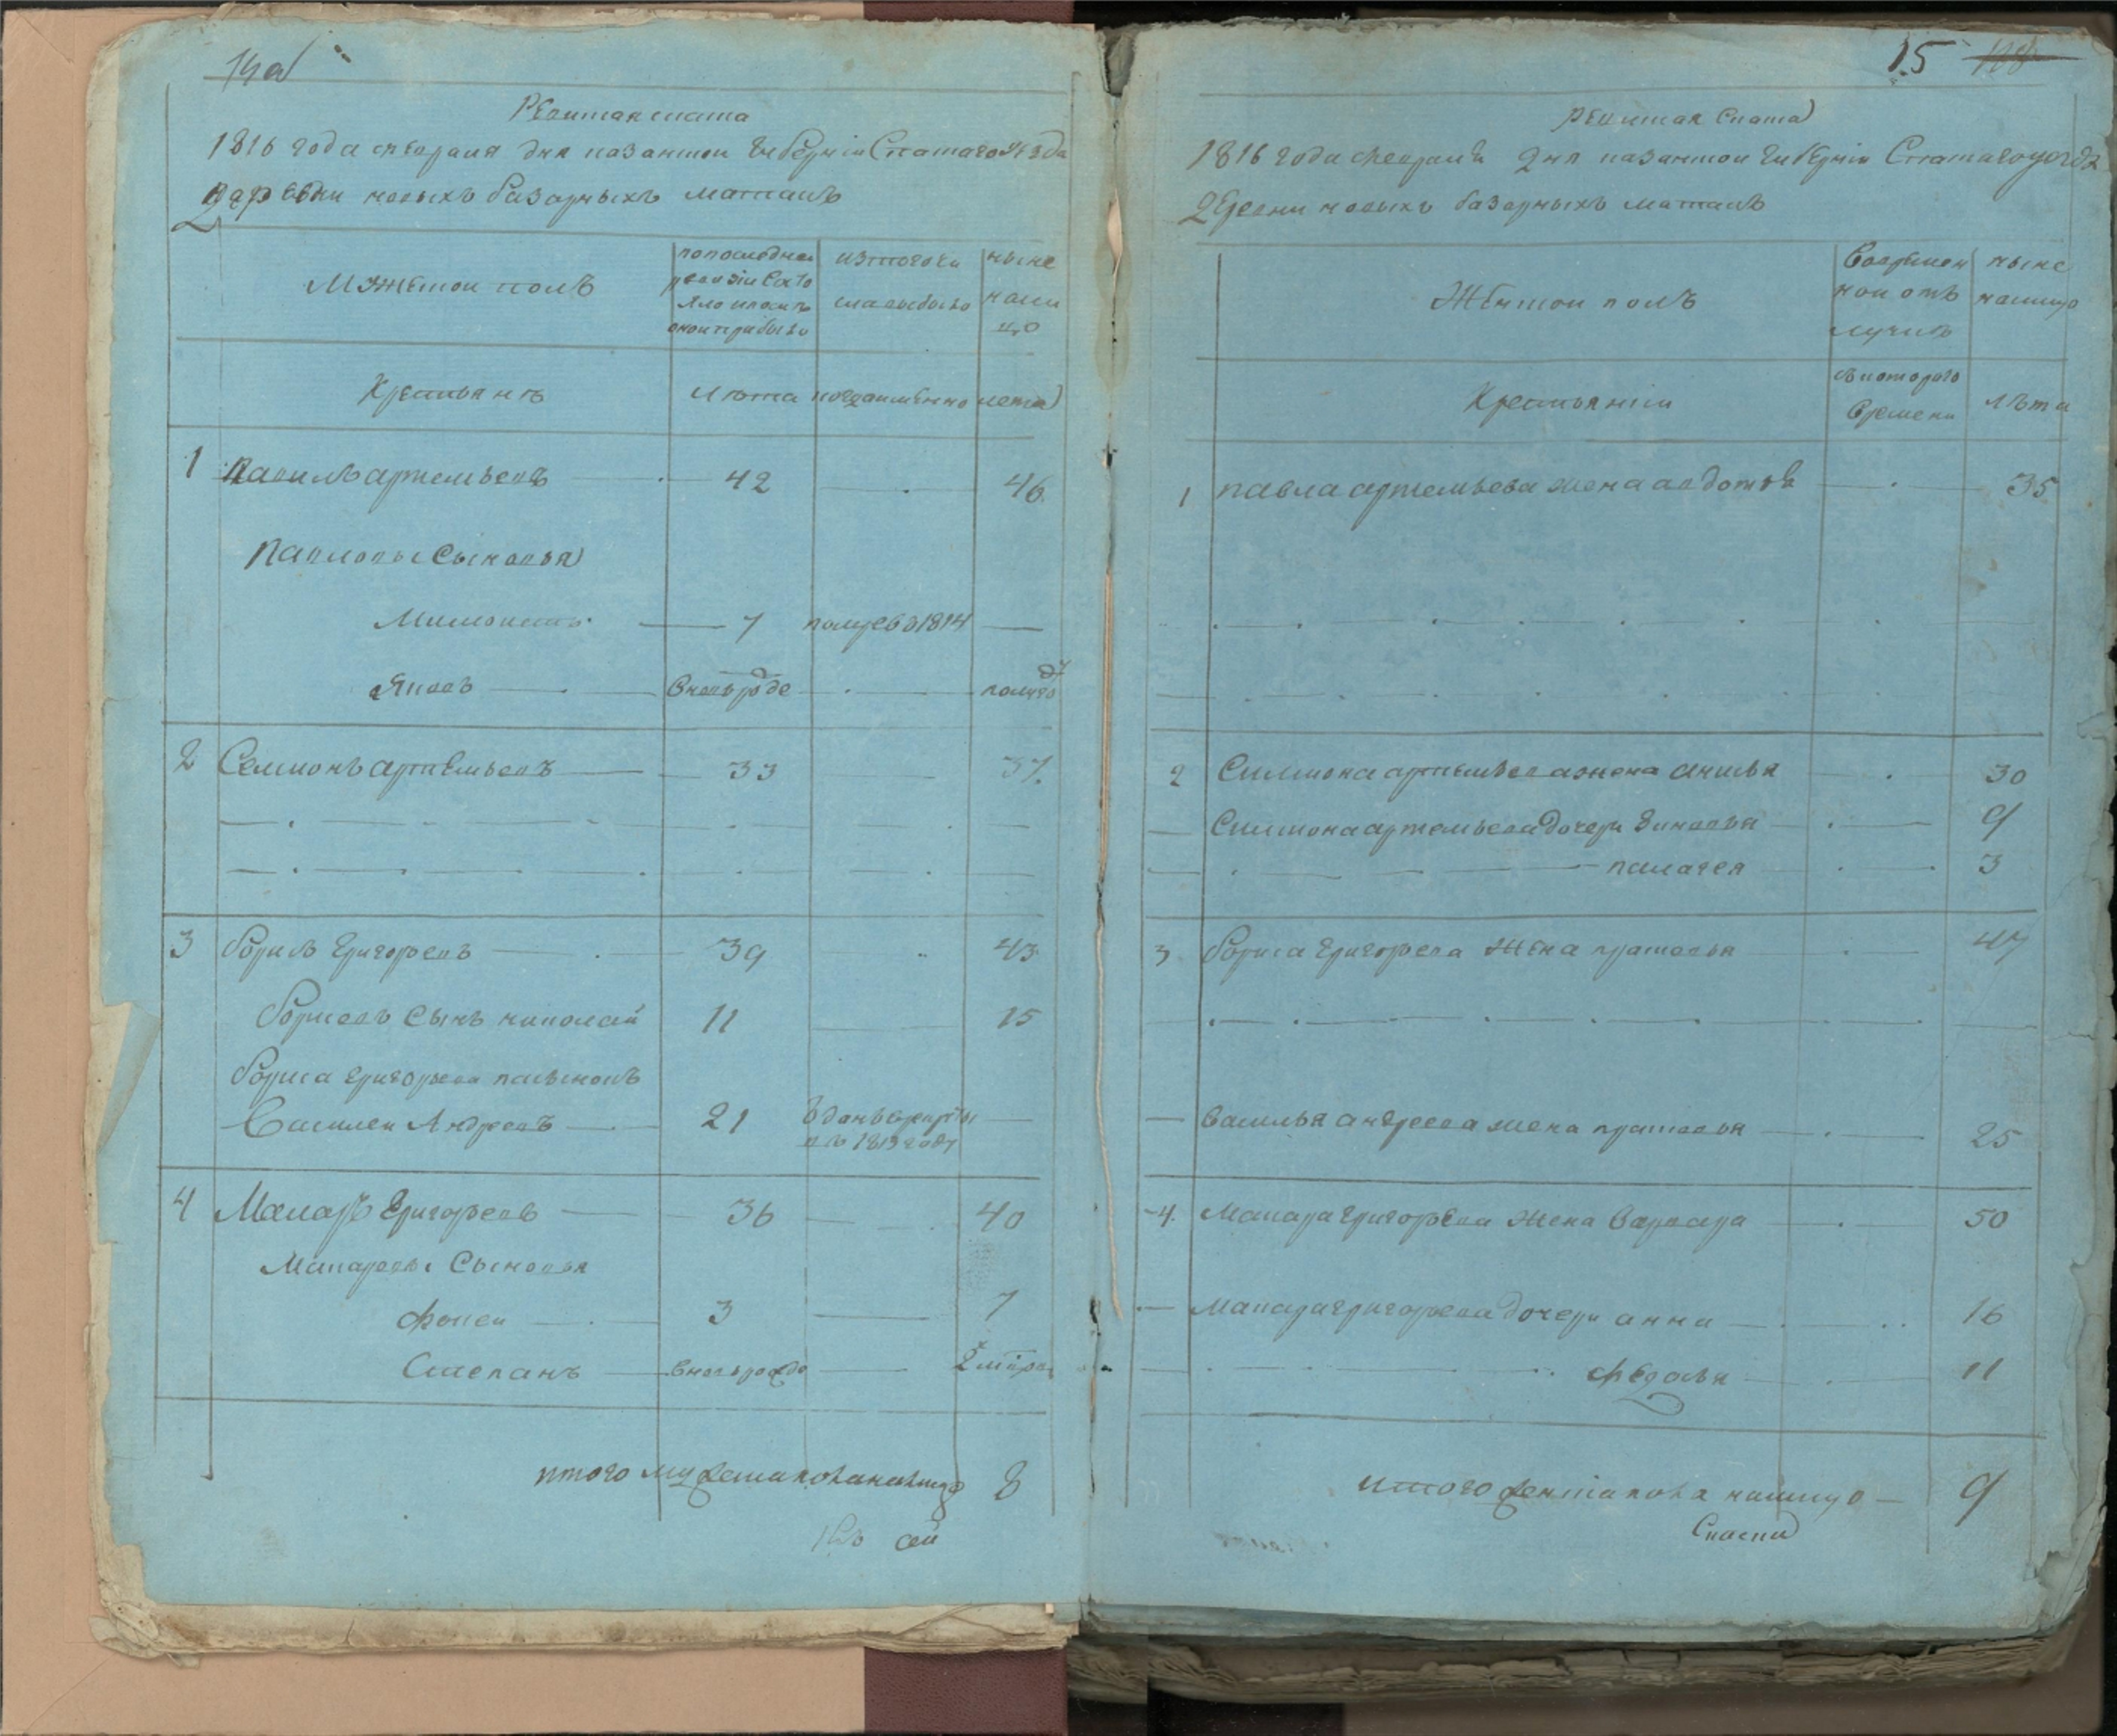 14 об
Ревитская скаска
1816 года февраля дня казанской губерніи Спаскаго уезда
деревни новыхъ базарныхъ матакъ
Мужескои полъ
попоследней ревизіи состояло ипосле онои прибыло
изтого числа выбыло
ныне налицо
Крестьянъ
лѣта
когда имянно
лета
1 Павилъ артемьевъ 42 46
Павловы Сыновья
7 померъ в 1814
Яковъ вновь рожде полугоду
2 Семионъ артемьевъ 33 37
3 борисъ григорьевъ 39 43
борисовъ Сынъ николай 11 15
бориса григорьева пасынокъ
Василеи Андреевъ 21 Отданъ врекруты въ 1813 году
4 Макаръ григорьевъ 36 40
Макаровы Сыновья
фокеи 3 7
Степанъ вновь рожде 2
итого мужеска пола налицо 8
15 108
Ревитская Скаска
1816 года февраля дня казанской губерніи Спаскаго уезда
деревни новыхъ базарныхъ матакъ
Женской полъ
Вовременной отлучке
ныне налицо
Крестьянки
скоторого времени
лѣта
1 павла артемьева жена авдотья 35
2 Симиона артемьева жена анисья 30
Симиона артемьева дочери зиновья 9
палагея 3
3 бориса григорьева жена прасковья 47
Василья андреева жена прасковья 25
4 Макара григорьева жена варвара 50
Макара григорьева дочери анна 16
федосья 11
итого женска пола налицо 9